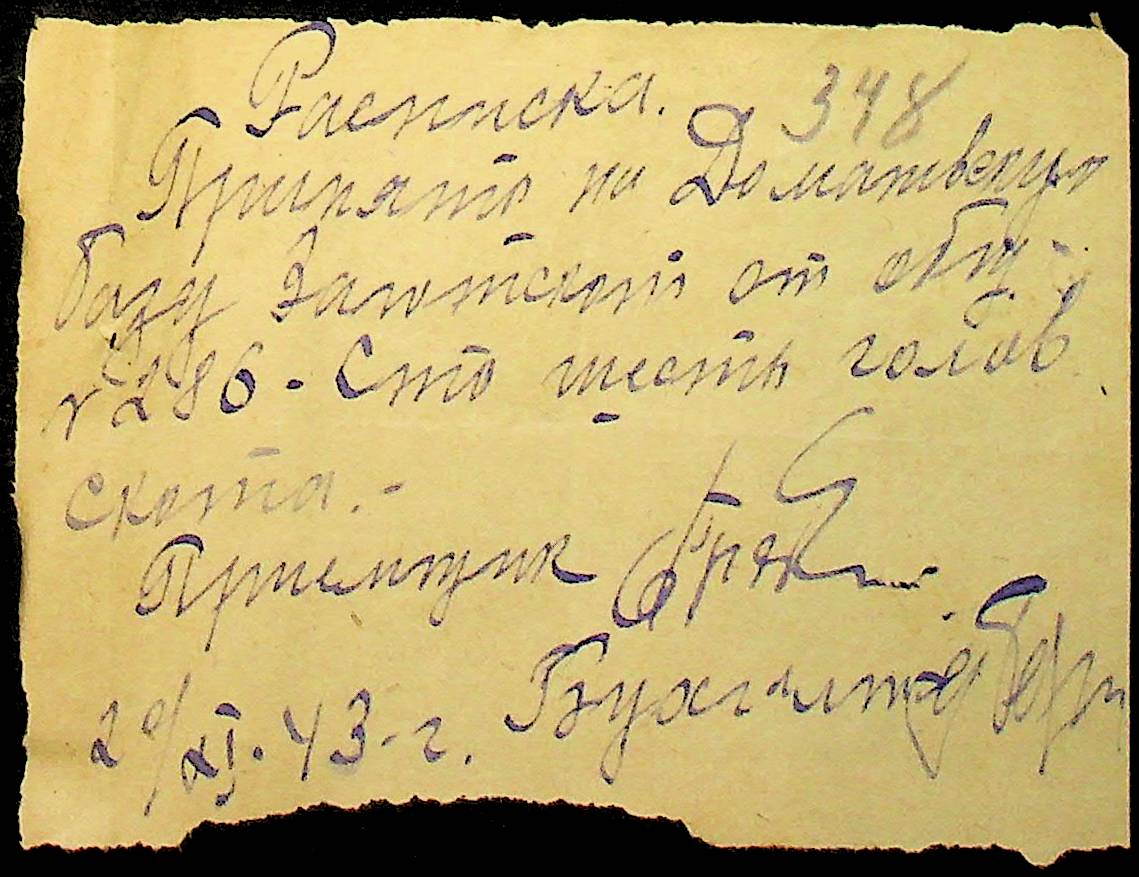 Расписка. 348
Принято на Доматвскую
базу Заготскот от общ.
№ 286 - Сто шесть голов
скота. -
Приемщик
Бухгалтер
29/XI - 43 - г.